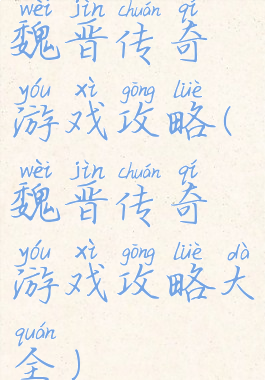 wèi jìn chuán qí
魏晋传奇
yóu xì gōng lüè
游戏攻略(
wèi jìn chuán qí
魏晋传奇
yóu xì gōng lüè dà
游戏攻略大
quán
全)